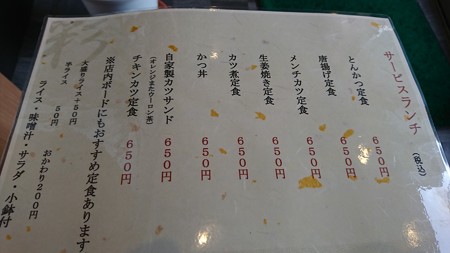 サービスランチ (税込)
とんかつ定食 650円
唐揚げ定食 650円
メンチカツ定食 650円
生姜焼き定食 650円
カツ煮定食 650円
かつ丼 650円
自家製カツサンド 650円
(オレンジまたウーロン茶)
チキンカツ定食 650円
※店内ボードにもおすすめ定食あります
大盛りライス+50円
半ライス 50円
おかわり200円
ライス・味噌汁・サラダ・小鉢付